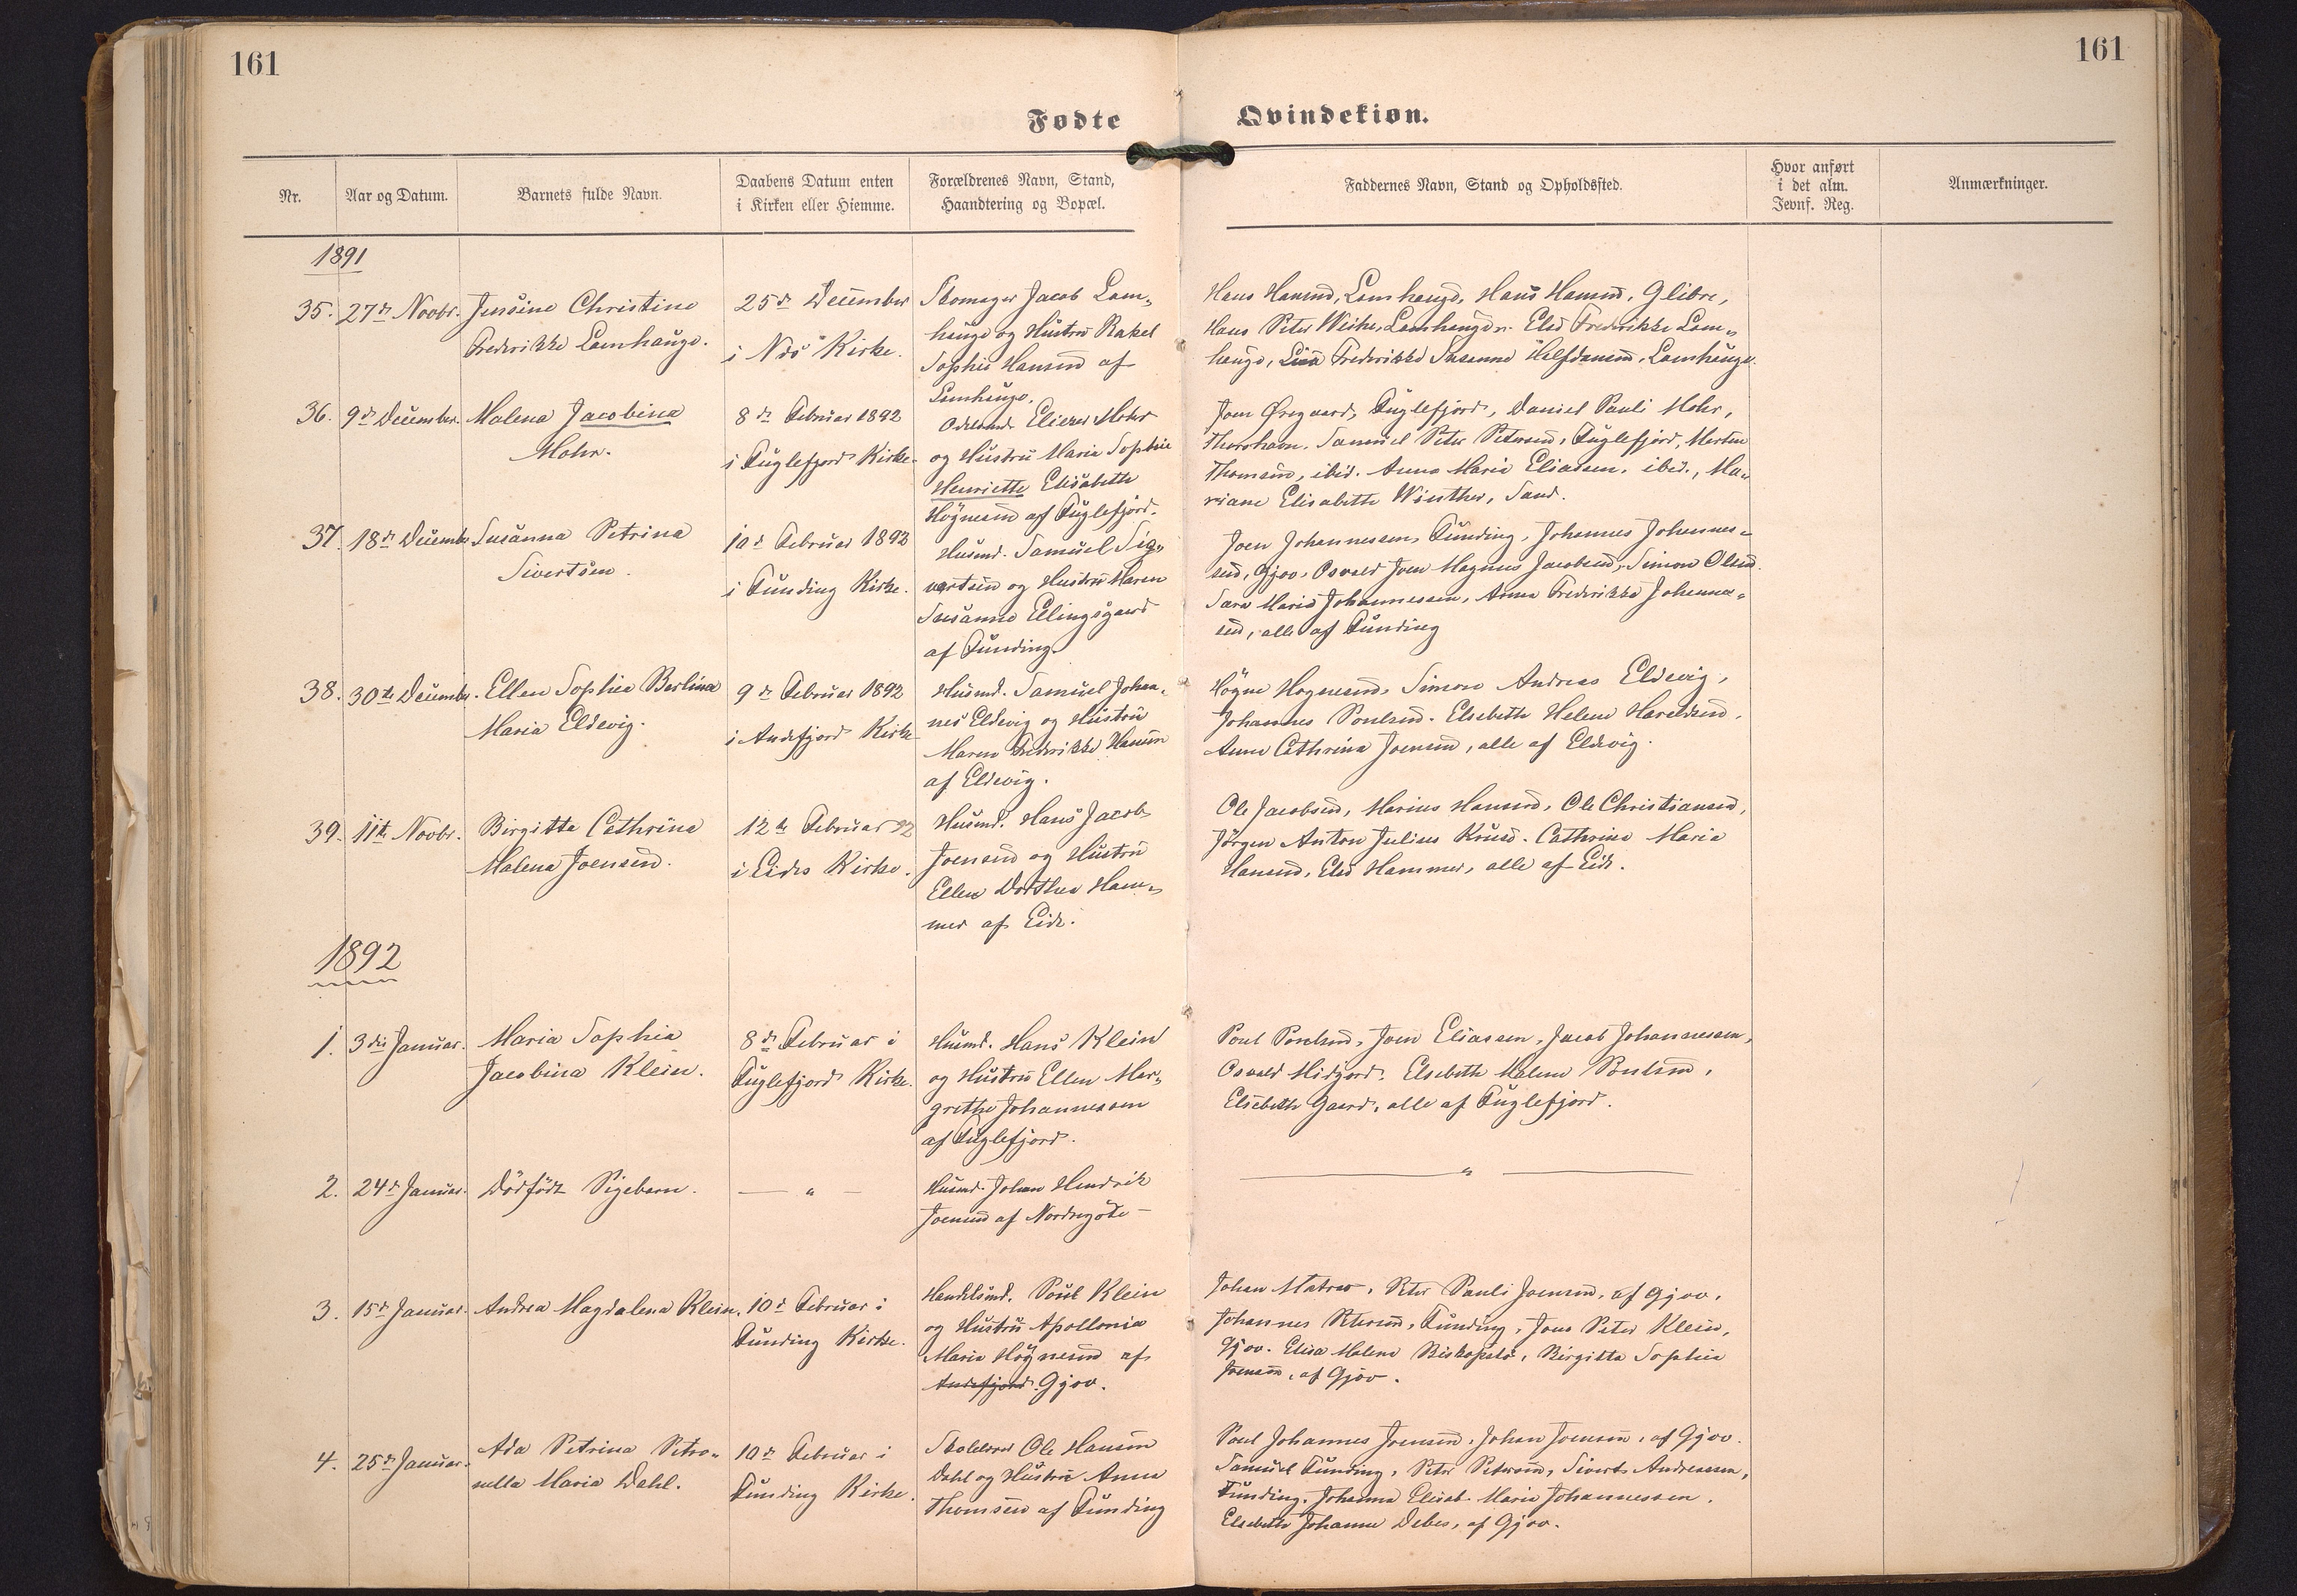 161
161
Fødte
Qvindekiøn.
Nr.
Aar og Datum.
Barnets fulde Navn.
Daabens Datum enten
i Kirken eller Hiemme.
Forældrenes Navn, Stand,
Haandtering og Bopæl.
Faddernes Navn, Stand og Opholdssted.
Hvor anført
i det alm.
Jevnf. Reg.
Anmærkninger.
1891
35. 27de Novbr. Jensine Christine
Frederikke Lamhauge.
25de December
i Næs Kirke.
Skomager Jacob Lam-
hauge og Hustru Rakel
Sophie Hansen af
Lamhauge.
Hans Hansen, Lamhauge, Hans Hansen, Glibre,
Hans Peter Weihe, Lamhauge. Else Frederikke Lam-
hauge, Frederikke Susanne Halfdansen, Lamhauge.
36. 9de December. Malena Jacobina
Mohr.
8de Februar 1892
i Fuglefjord Kirke.
Odelsmd. Eliezer Mohr
og Hustru Maria Sophie
Henriette Elisabeth
Høgnesen af Fuglefjord.
Joen Øregaard, Fuglefjord, Daniel Pauli Mohr,
Thorshavn. Samuel Peter Petersen, Fuglefjord, Morten
Thomsen, ibid. Anna Maria Eliasen, ibid., Ma-
riane Elisabeth Winther, Sand.
37. 18de Decembr. Susanna Petrina
Sivertsen.
10de Februar 1892
i Funding Kirke.
Husmd. Samuel Sig-
vartsen og Hustru Maren
Susanne Ellingsgaard
af Funding.
Joen Johannessen, Funding, Johannes Johannes-
sen, Gjov. Osvald Joen Magnus Jacobsen, Simon Olsen.
Sara Maria Johannessen, Anna Frederikke Johannes-
sen, alle af Funding
38. 30te Decembr. Ellen Sophie Berlina
Maria Eldevig.
9de Februar 1892
i Andefjord Kirke
Husmd. Samuel Johan-
nes Eldevig og Hustru
Maren Frederikke Hansen
af Eldevig.
Høgne Høgnesen, Simon Andreas Eldevig,
Johannes Poulsen. Elsebeth Helene Haraldsen,
Anne Cathrina Joensen, alle af Eldevig.
39. 11te Novbr. Birgitta Cathrine
Malena Joensen.
12te Februar 92
i Eides Kirke.
Husmd. Hans Jacob
Joensen og Hustru
Ellen Dorthea Ham-
mer af Eide.
Ole Jacobsen, Marius Hansen, Ole Christiansen,
Jørgen Anton Julius Kruse. Cathrine Maria
Hansen, Else Hammer, alle af Eide.
1892
1. 3die Januar. Maria Sophie
Jacobina Klein.
8de Februar i
Fuglefjord Kirke.
Husmd. Hans Klein
og Hustru Ellen Mar-
grethe Johannessen
af Fuglefjord.
Poul Poulsen, Joen Eliassen, Jacob Johannessen,
Osvald Midjord. Elsebeth Malene Poulsen,
Elsebeth Gaard, alle af Fuglefjord.
2. 24de Januar. Dødfødt Pigebarn.
— " —
Husmd. Johan Hendrik
Joensen af Nordregøte —
— " —
3. 15de Januar. Andrea Magdalena Klein.
10de Februar i
Funding Kirke.
Handelsmd. Poul Klein
og Hustru Apollonia
Maria Høgnesen af
Andefjord Gjov.
Johan Matras, Peter Pauli Joensen, af Gjov,
Johannes Petersen, Funding, Jens Peter Klein,
Gjov. Elisa Malene Biskopstø, Birgitta Sophie
Joensen, af Gjov.
4. 25de Januar. Ada Petrina Petro-
nella Maria Dahl.
10de Februar i
Funding Kirke.
Ole Hansen
Dahl og Hustru Anna
Thomsen af Funding
Poul Johannes Joensen, Johan Joensen, af Gjov.
Samuel Funding, Peter Petersen, Sivert Andreassen,
Funding. Johanna Elisab. Maria Johannessen,
Elsebeth Johanne Debes, af Gjov.